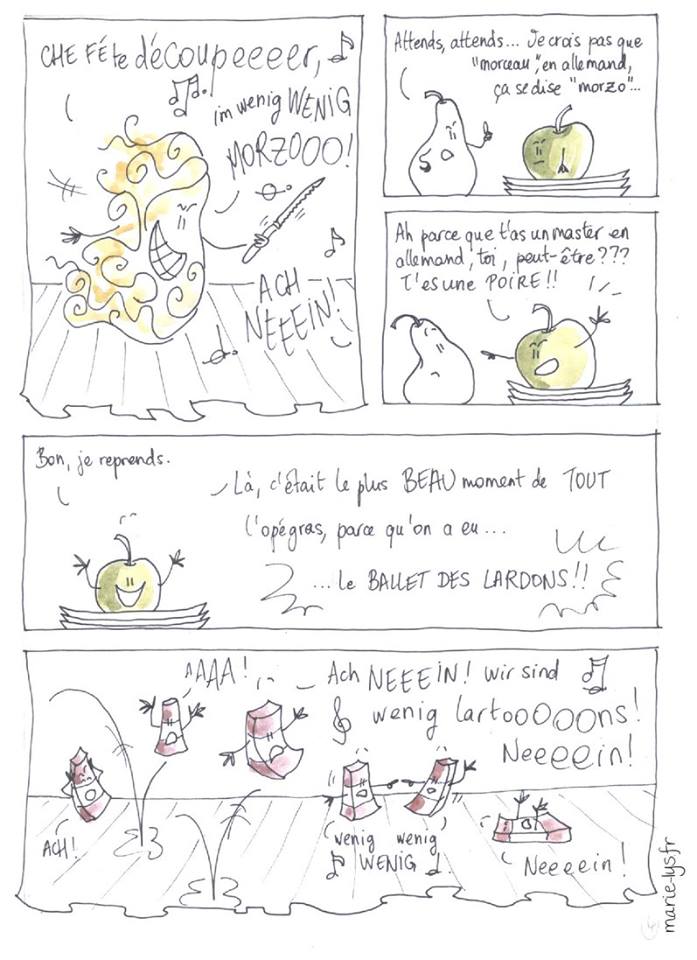 CHE FÉTE DÉCOUPEEEER,
im wenig WENIG
MORZOOO!
ACH
NEEEIN!
Attends, attends... Je crois pas que
"morceau", en allemand,
ça se dise "morzo"...
Ah parce que t'as un master en
allemand, toi, peut-être???
T'es une POIRE!!
Bon, je reprends.
Là, c'était le plus BEAU moment de TOUT
l'opégras, parce qu'on a eu...
...le BALLET DES LARDONS!!
AAAA!
Ach NEEEIN! wir sind
wenig lartooOOOons!
Neeeein!
ACH!
wenig wenig
WENIG
Neeeein!
marie-lys.fr